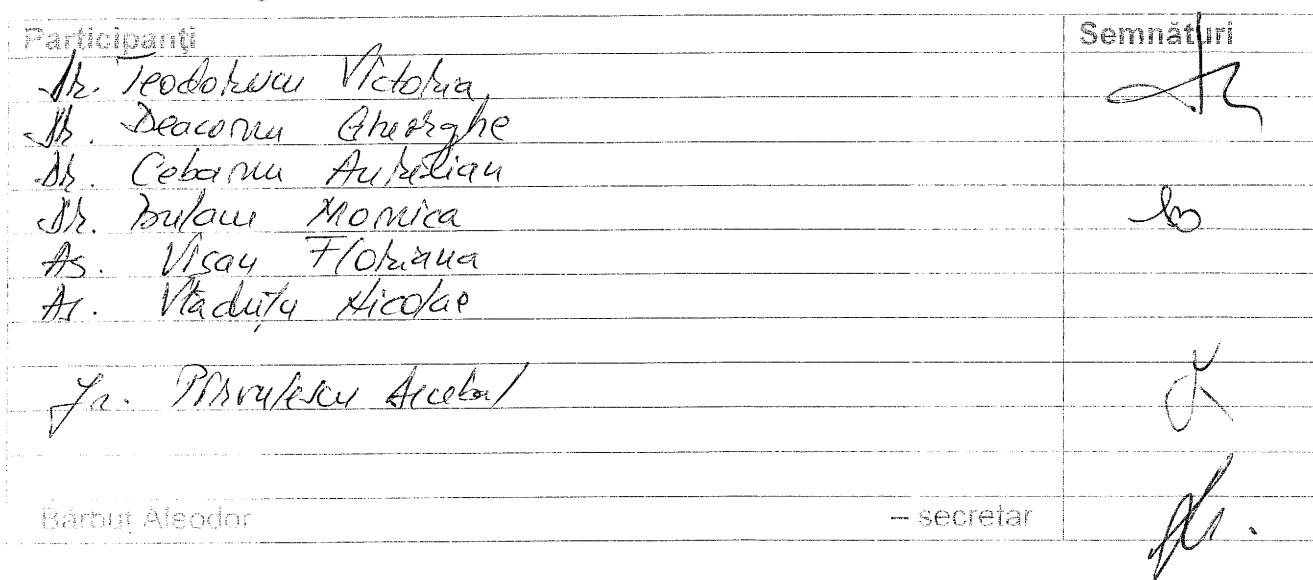 Participanţi Semnături
Dr. Teodorescu Victoria
Dr. Deaconu Gheorghe
Dr. Cebanu Aurelian
Dr. Monica
As. Vişan Floriana
As. Vlăduţu Nicolae
Pîrvulescu Decebal
Bărbuţ Aleodor – secretar